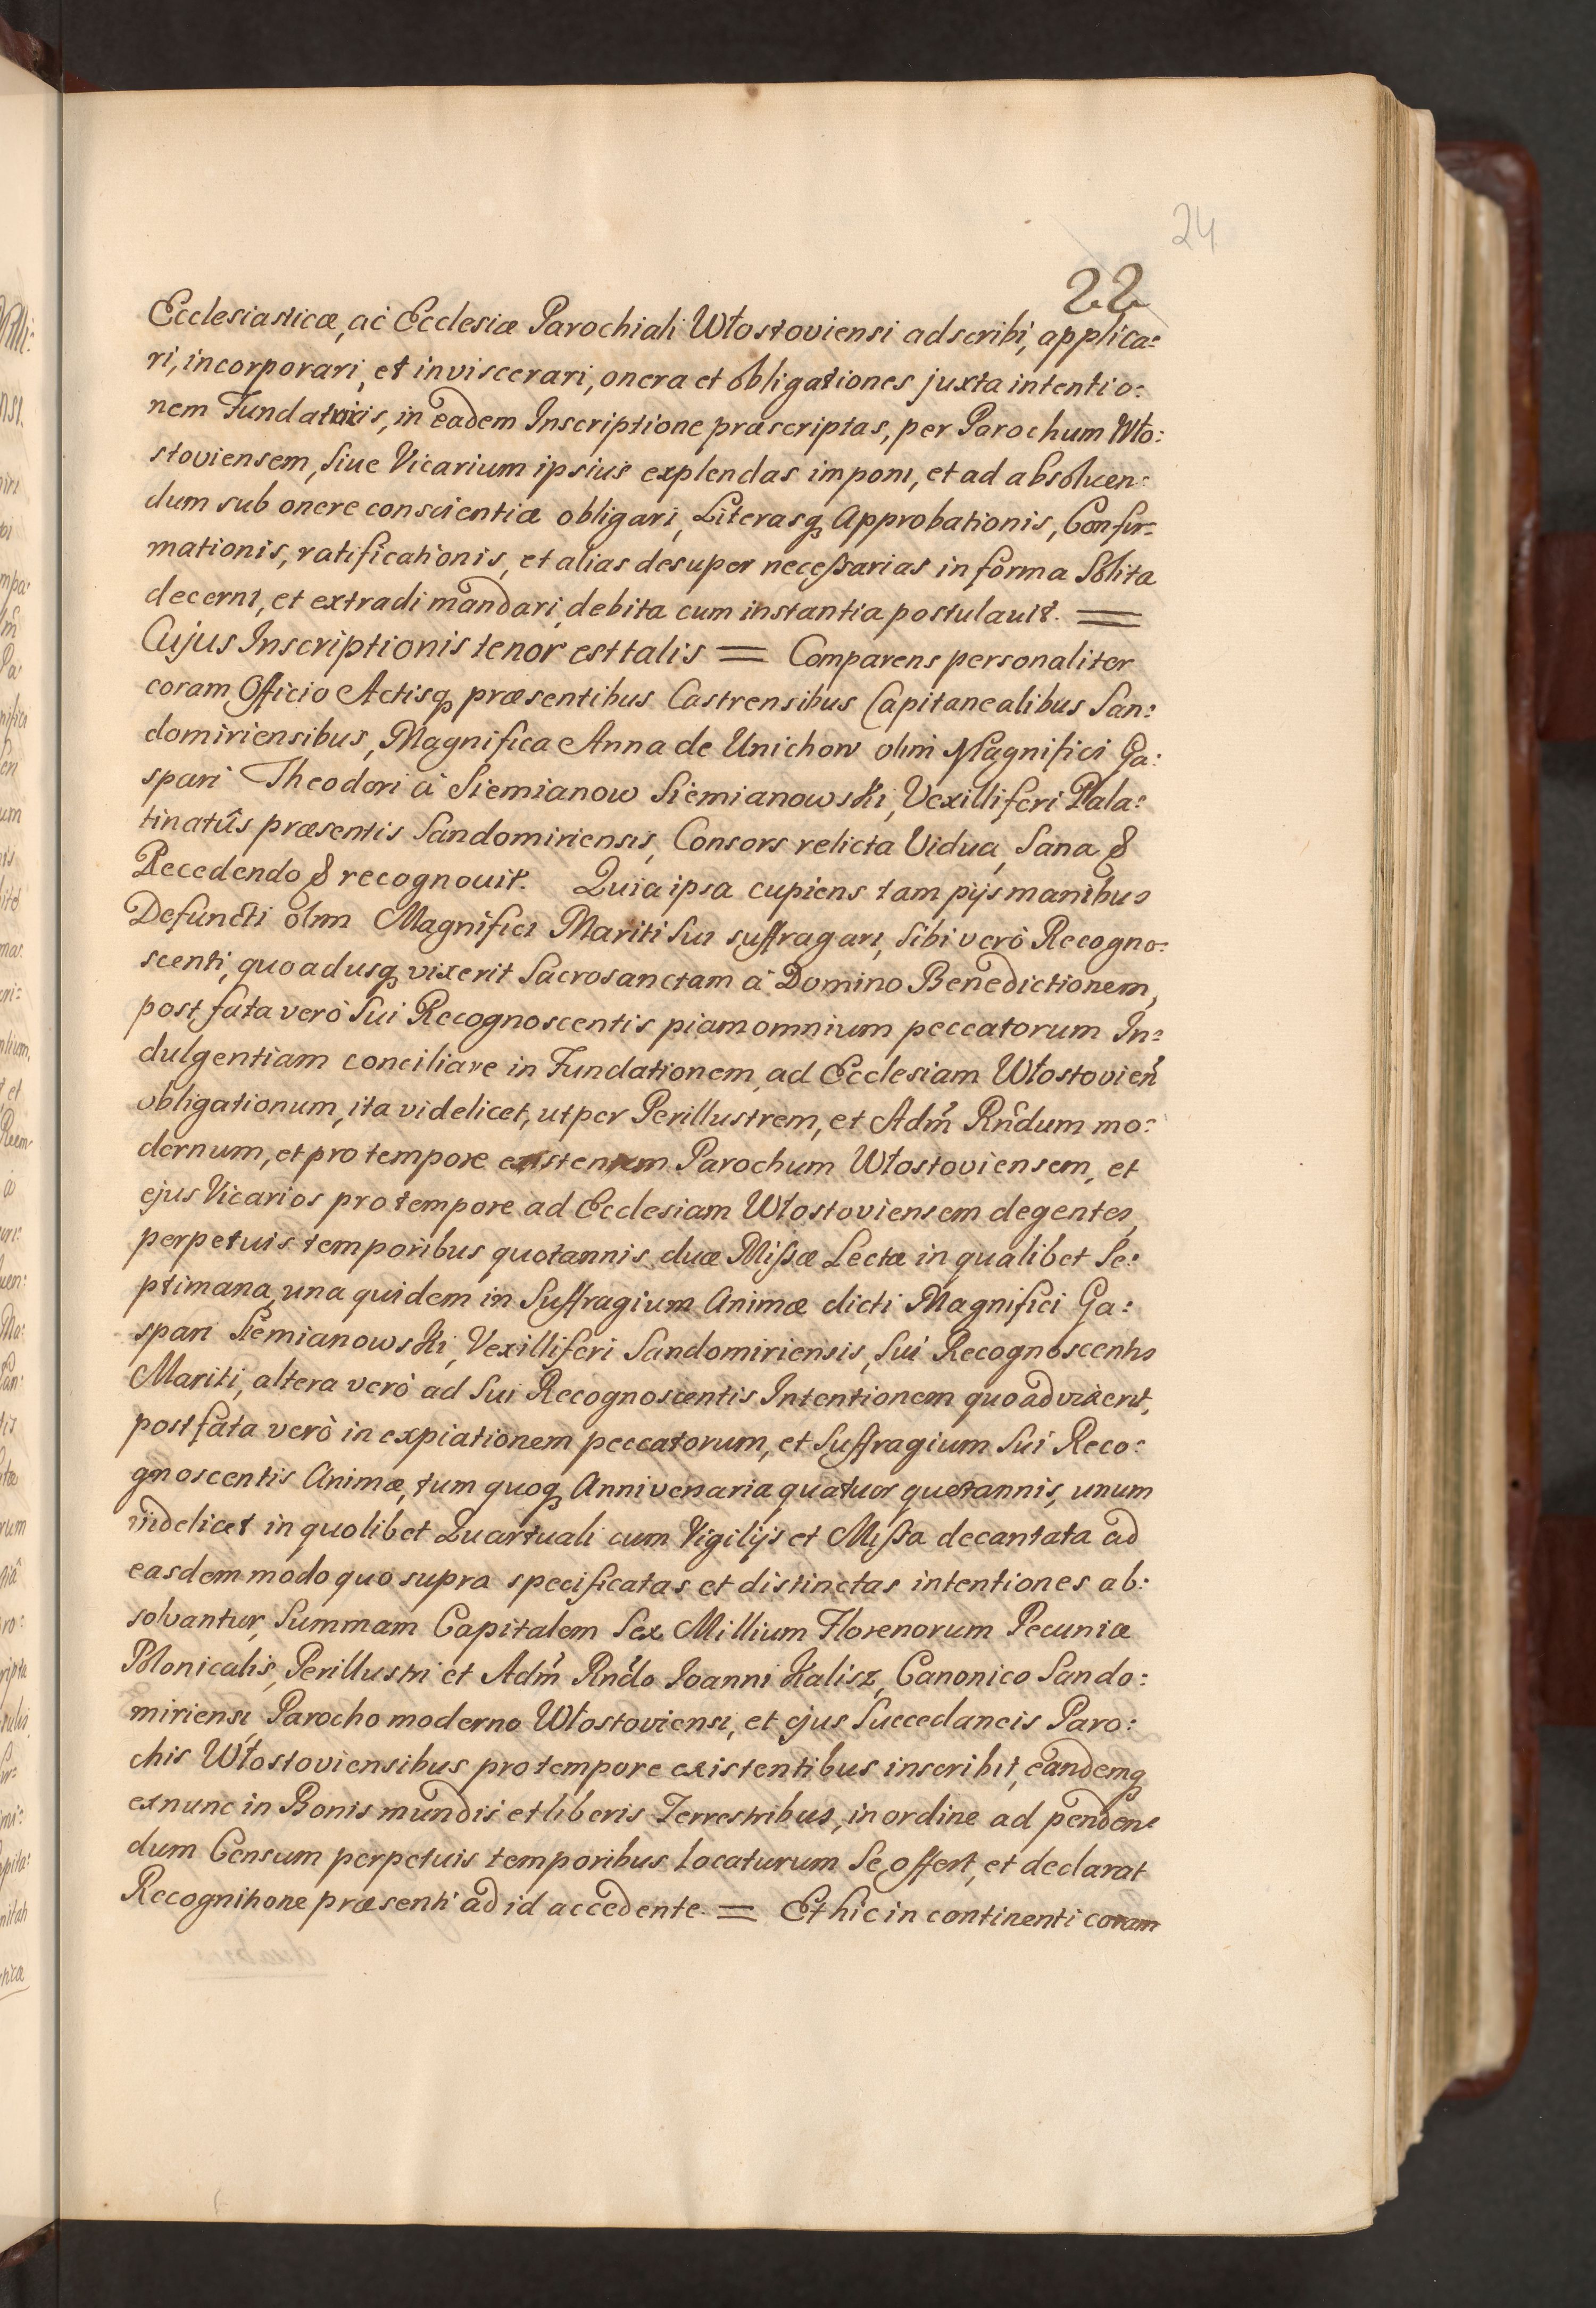 24
22
Ecclesiasticæ, ac Ecclesiæ Parochiali Włostoviensi adscribi, applica=
ri, incorporari, et inviscerari, onera et obligationes juxta intentio=
nem Fundatricis, in eadem Inscriptione præscriptas, per Parochum Wło=
stoviensem, sive Vicarium ipsius explendas imponi, et ad absolven=
dum sub onere conscientiæ obligari, Literasq Approbationis, Confir=
mationis, ratificationis, et alias desuper necessarias in forma solita
decerni, et extradi mandari, debita cum instantia postulauit. =
Cujus Inscriptionis tenor est talis = Comparens personaliter
coram Officio Actisq præsentibus Castrensibus Capitanealibus San=
domiriensibus, Magnifica Anna de Unichow olim Magnifici Ga=
spari Theodori à Siemianow Siemianowski, Vexilliferi Pala=
tinatûs præsentis Sandomiriensis, Consors relicta Vidua, Sana &
Recedendo & recognouit. Quia ipsa cupiens tam pijs manibus
Defuncti olim Magnifici Mariti sui suffragari, sibi verò Recogno=
scenti, quoadusq vixerit Sacrosanctam à Domino Benedictionem,
post fata verò sui Recognoscentis piam omnium peccatorum In=
dulgentiam conciliare in Fundationem ad Ecclesiam Włostovien
obligationum, ita videlicet, ut per Perillustrem, et Adm Rndum mo=
dernum, et pro tempore existentem Parochum Włostoviensem, et
ejus Vicarios pro tempore ad Ecclesiam Włostoviensem degentes,
perpetuis temporibus quotannis duæ Missæ Lectæ in qualibet Se=
ptimana, una quidem in Suffragium Animæ dicti Magnifici Ga=
spari Siemianowski, Vexilliferi Sandomiriensis, sui Recognoscentis
Mariti, altera verò ad sui Recognoscentis Intentionem quoad vixerit,
post fata verò in expiationem peccatorum, et Suffragium sui Reco=
gnoscentis Animæ, tum quoq Anniversaria quatuor quotannis, unum
videlicet in quolibet Quartuali cum Vigilijs et Missa decantata ad
easdem modo quo supra specificatas et distinctas intentiones ab=
solvantur, Summam Capitalem Sex Millium Florenorum Pecuniæ
Polonicalis, Perillustri et Adm Rndo Ioanni Kalisz, Canonico Sando=
miriensi Parocho moderno Włostoviensi, et ejus Succedaneis Paro=
chis Włostoviensibus pro tempore existentibus inscribit, eandemq
exnunc in Bonis mundis et liberis Terrestribus, in ordine ad penden=
dum Censum perpetuis temporibus locaturum se offert, et declarat
Recognitione præsenti ad id accedente. = Et hic in continenti coram